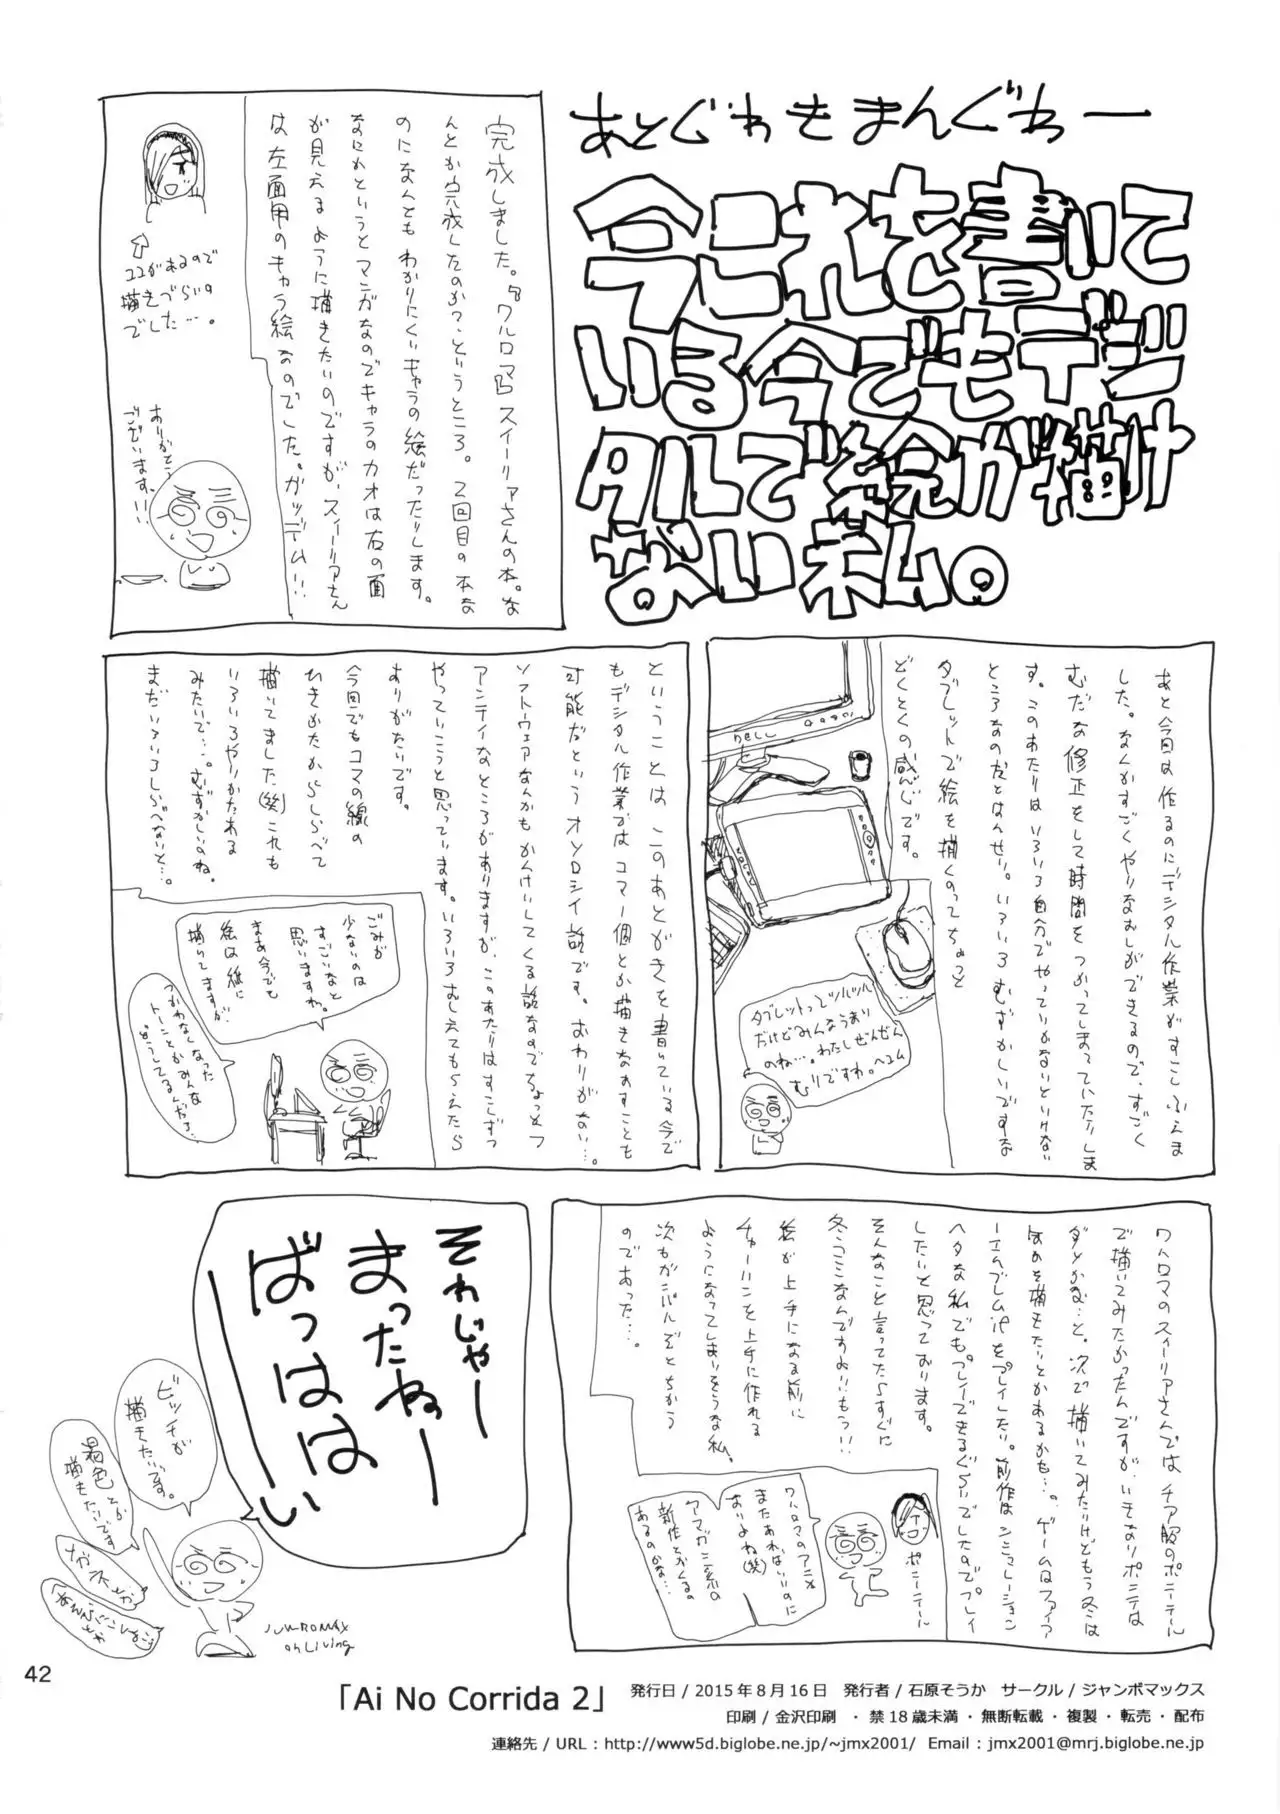 あとぐわきまんぐわー
今これを書いて
いる今でもデジ
タルで絵が描け
ない私。
完成しました。『ワルロマ』スイーリアさんの本。な
んとか完成したのか?というところ。2回目の本な
のになんともわかりにくいキャラの絵だったりします。
なにかというとマンガなのでキャラのカオは右の面
が見えるように描きたいのですが、スイーリアさん
は左面用のキャラ絵なのでした。ガッデム!!!
ココがあるので
描きづらいの
でした…。
ありがとう
ございます!!
あと今回は作るのにデジタル作業がすこしふえま
した。なんかすごくやりなおしができるので、すごく
むだな修正をして時間をつかってしまっていたりしま
す。このあたりはいろいろ自分でやっていかないといけない
ところなのだとはんせい。いろいろむずかしいですな
タブレットで絵を描くのってちょっと
どくとくの感じです。
DELL
タブレットってツルツル
だけどみんなうまい
のね…。わたしぜんぜん
むりですわ。ヘコム
ということはこのあとがきを書いている今で
もデジタル作業ではコマ一個とか描きなおすことも
可能だというオソロシイ話です。おわりがない…。
ソフトウェアなんかもかんけいしてくる話なのでちょっとフ
アンティなところがありますが、このあたりはすこしずつ
やっていこうと思っています。いろいろおしえてもらえたら
ありがたいです。
今回でもコマの線の
ひきかたからしらべて
描いてました(笑)これも
いろいろやりかたある
みたいで…。むずかしいのね。
まだいろいろしらべないと…。
ごみが
少ないのは
すごいなと
思いますわ。
まあ今でも
絵は紙に
描いてますが
つかわなくなった
トーンとかみんな
どうしてるんだろ…
ワルロマのスイーリアさんではチア服のポニーテール
で描いてみたかったんですが、いきなりポニテは
ダメかな…と。次で描いてみたいけどもう冬は
なにを描きたいとかあるかも…。ゲームはファイア
ーエムブレムifをプレイしたい。前作はシミュレーション
ヘタな私でもプレイできるぐらいでしたのでプレイ
したいと思っております。
そんなこと言ってたらすぐに
冬コミなんですよ!!もうっ!!
絵が上手になる前に
チャーハンを上手に作れる
ようになってしまいそうな私。
次もガンバルぞとちかう
のであった…。
ポニーテール
ワルロマのアニメ
またあればいいのに
おりよね(笑)
アマガミ系の
新作とかくるの
あるのかな…
それじゃー
まったねぇー
ばっははーい
ビッチが
描きたいです。
褐色とか
描きたいです
メガネとか
JUMBOMAX
on Living
42
「Ai No Corrida 2」 発行日 / 2015年8月16日　発行者 / 石原そうか　サークル / ジャンボマックス
印刷 / 金沢印刷　・禁18歳未満・無断転載・複製・転売・配布
連絡先 / URL : http://www5d.biglobe.ne.jp/~jmx2001/　Email : jmx2001@mrj.biglobe.ne.jp